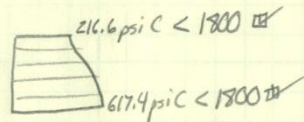 216.6 psi C < 1800 ☑
617.4 psi C < 1800 ☑